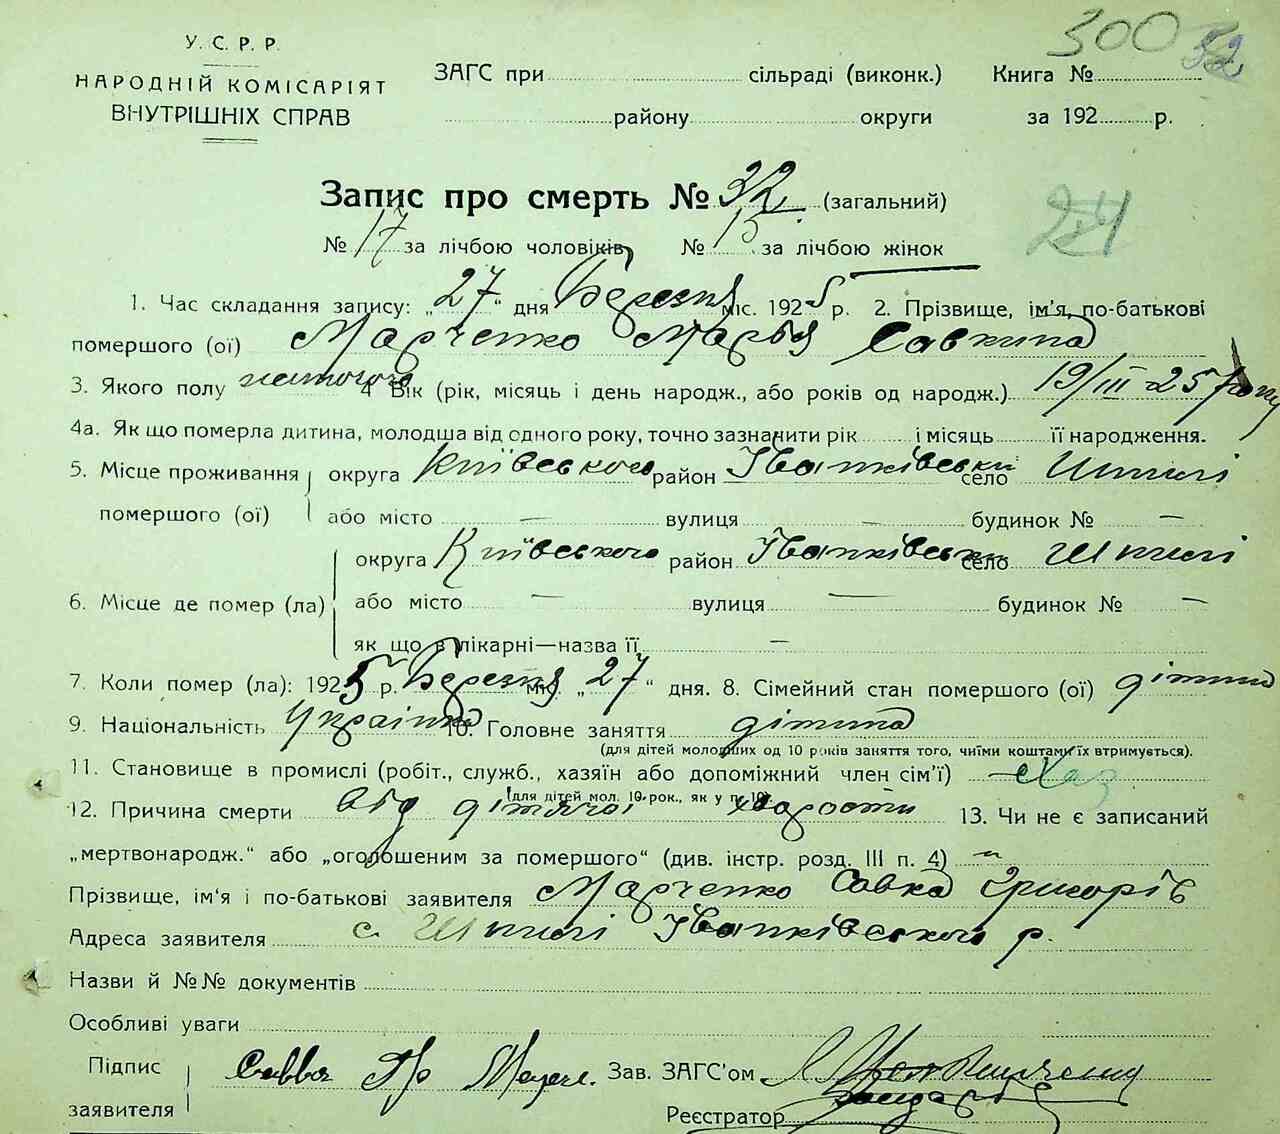 300 32
У. С. Р. Р.
НАРОДНІЙ КОМІСАРІЯТ
ВНУТРІШНІХ СПРАВ
ЗАГС при сільраді (виконк.) Книга №
району округи за 192 р.
Запис про смерть № 32 (загальний)
№ 17 за лічбою чоловіків № 15 за лічбою жінок
1. Час складання запису: „27“ дня Березня міс. 1925 р. 2. Прізвище, ім'я, по-батькові
помершого (ої) Марченко Марья Савкина
3. Якого полу жіночого 4 Вік (рік, місяць і день народж., або років од народж.) 19/III-25 року
4а. Як що померла дитина, молодша від одного року, точно зазначити рік і місяць її народження.
5. Місце проживання округа Київського район Іванківськи село Шпилі
помершого (ої) або місто — вулиця — будинок № —
округа Київського район Іванківськи село Шпилі
6. Місце де помер (ла) або місто — вулиця — будинок № —
як що в лікарні—назва її —
7. Коли помер (ла): 1925 р. Березня міс. „27“ дня. 8. Сімейний стан помершого (ої) дітина
9. Національність Українка 10. Головне заняття дітина
(для дітей молодших од 10 років заняття того, чиїми коштами їх втримується).
11. Становище в промислі (робіт., служб., хазяїн або допоміжний член сім'ї) Хаз
(для дітей мол. 10 рок., як у п. 10)
12. Причина смерти від дітячої хворости 13. Чи не є записаний
„мертвонародж.“ або „оголошеним за помершого“ (див. інстр. розд. III п. 4)
Прізвище, ім'я і по-батькові заявителя Марченко Савка Григорів
Адреса заявителя с. Шпилі Іванківського р.
Назви й №№ документів
Особливі уваги
Підпис заявителя Савва Гр Зав. ЗАГС'ом
Реєстратор